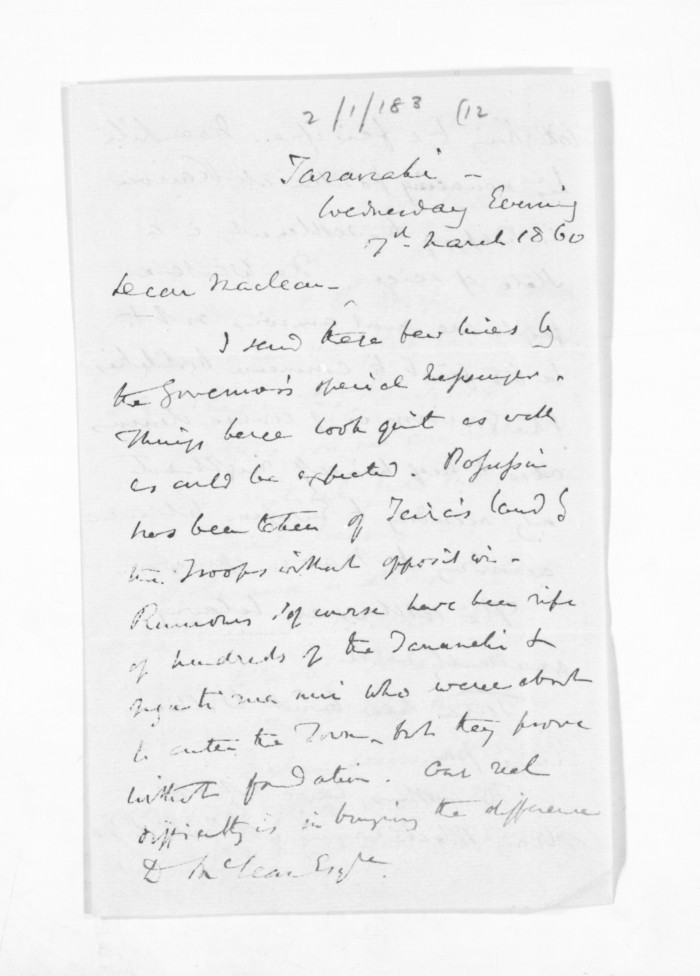 2/1/183 (12
Taranaki -
Wednesday Evening
7th March 1860
Dear Maclean -
I send these few lines by
the Governor's special Messenger.
Things here look quit as well
as could be expected. Possession
has been taken of Teira's land by
the Troops without opposition -
Rumours of course have been rife
of hundreds of the Taranaki &
Ngati who were about
to enter the Town - but they prove
without foundation. Our real
difficulty is in bringing the difference
D McLean Esqre.